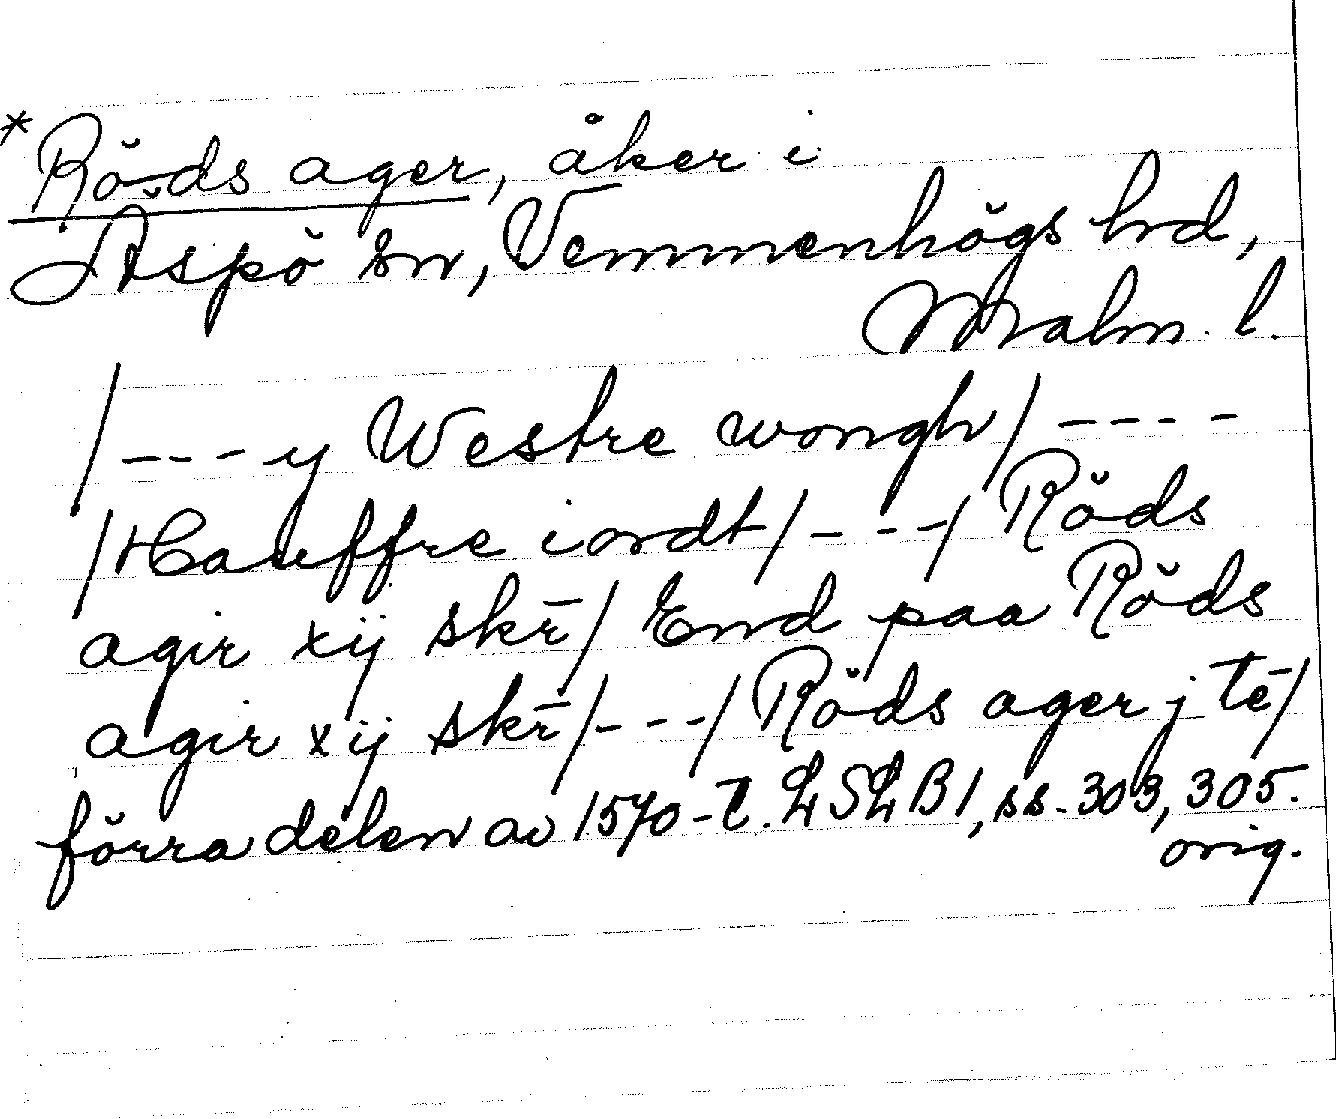 *Röds ager, åker i
Äspö sn, Vemmenhögs hd,
Malm. l.
/---y Westre wongh/----
/Hauffre iordt/---/ Röds
agir xij skē/ End paa Röds
agir xij skē/---/ Röds ager j tē/
förra delen av 1570-t. LSLB1, ss. 303, 305.
orig.